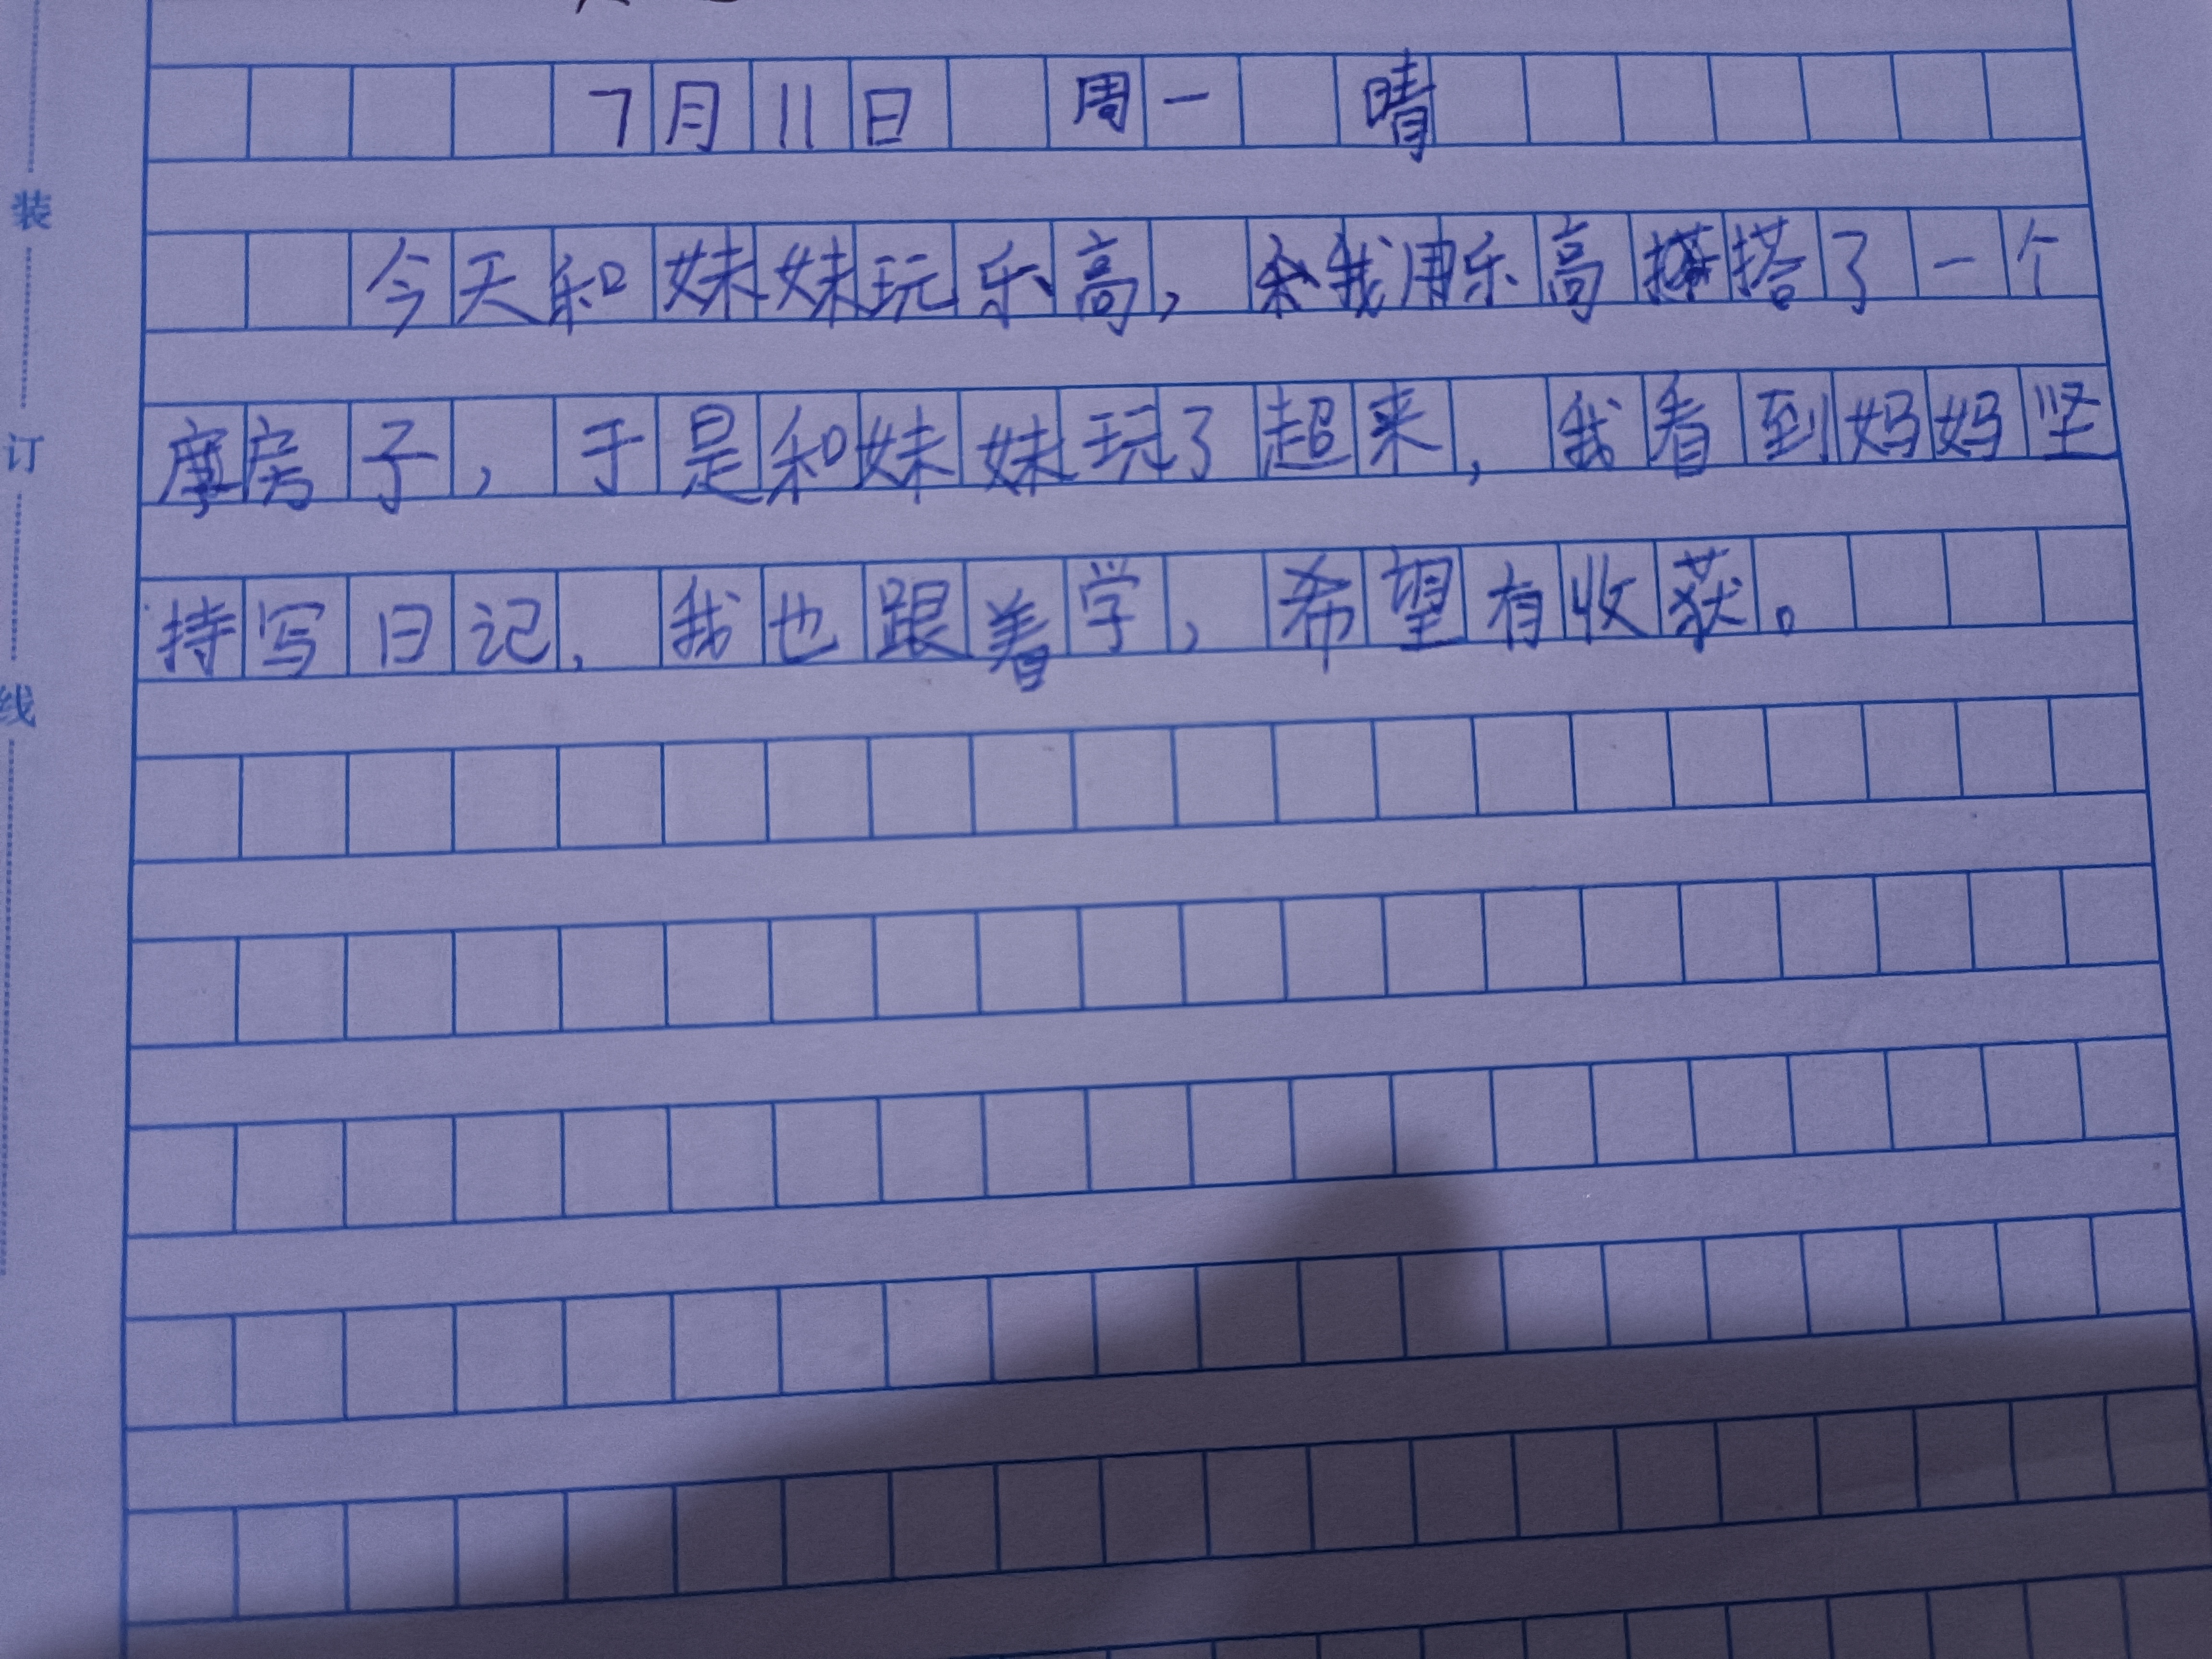 7月11日 周一 晴
今天和妹妹玩乐高，我用乐高搭了一个
摩房子，于是和妹妹玩了超来，我看到妈妈坚
持写日记，我也跟着学，希望有收获。
装
订
线